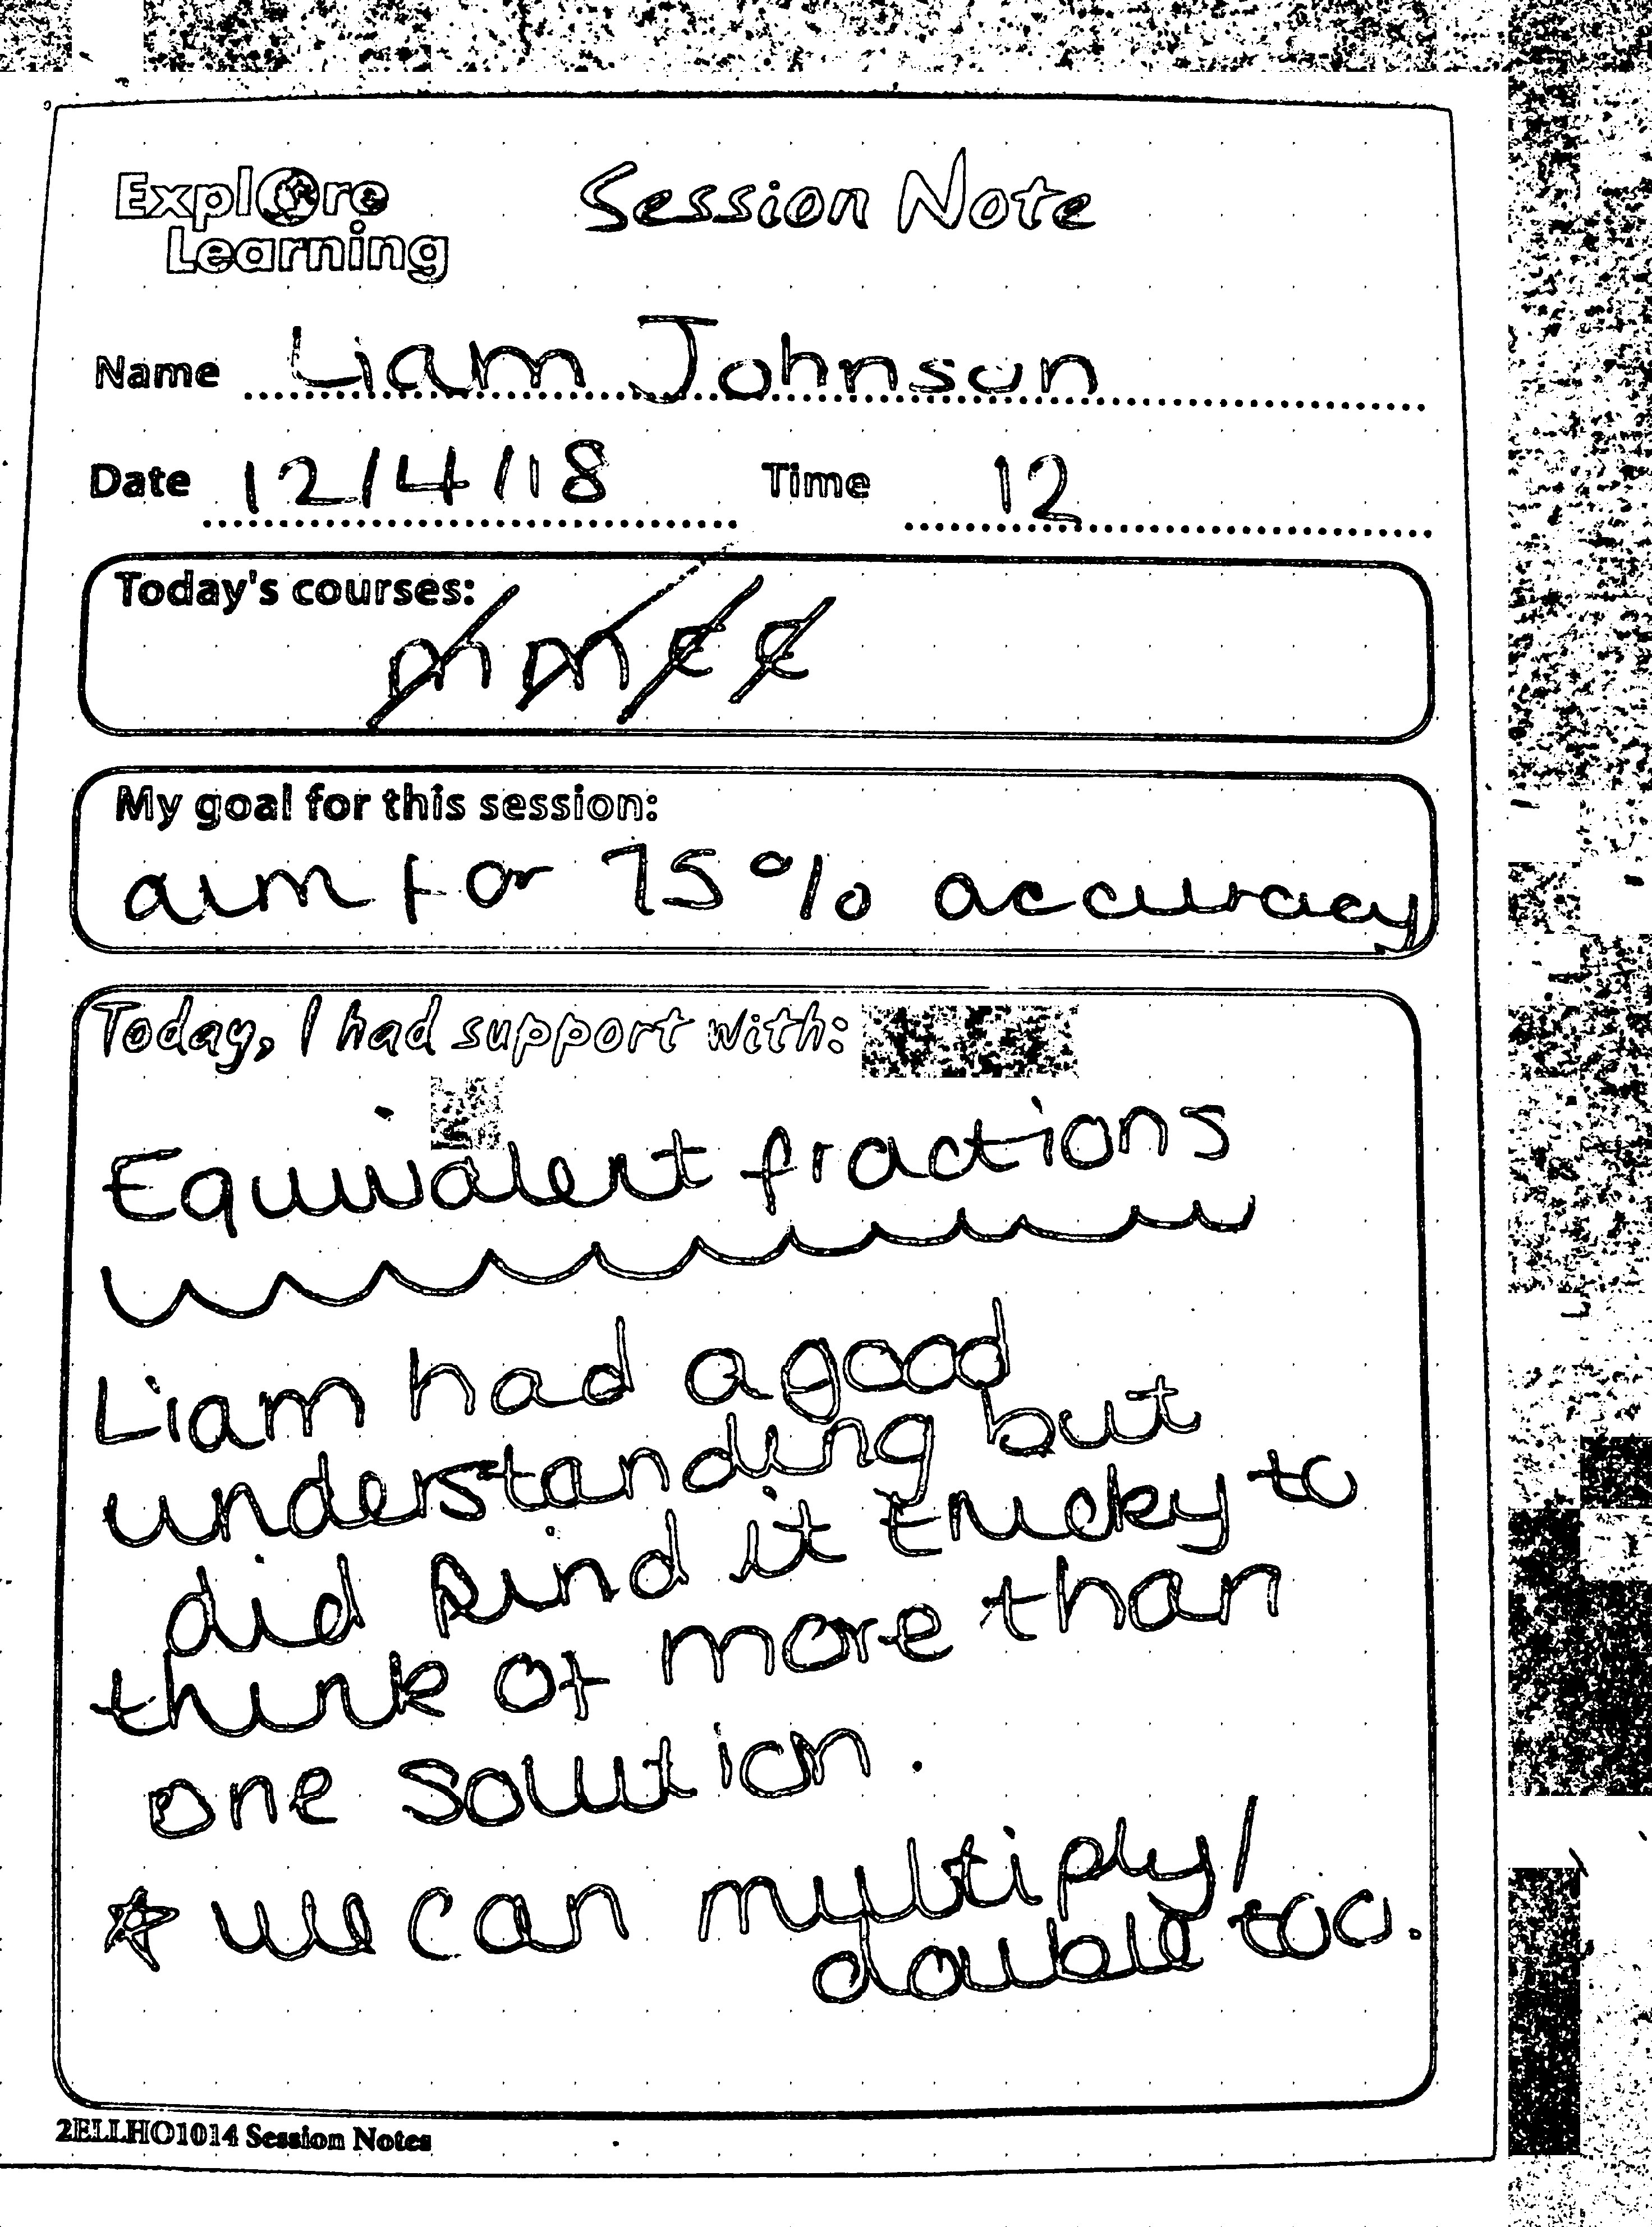 Explore
Learning
Session Note
Name Liam Johnson
Date 12/4/18 Time 12
Today's courses:
m m E E
My goal for this session:
aim for 75% accuracy
Today, I had support with:
Equivalent fractions
Liam had a good
understanding but
did find it tricky to
think of more than
one solution.
☆ we can multiply/
double too.
2ELLHO1014 Session Notes